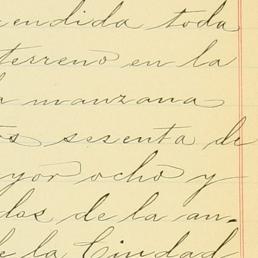 endida toda
terreno en la
manzana
os sesenta de
yor ocho y
dos de la an-
de la Ciudad